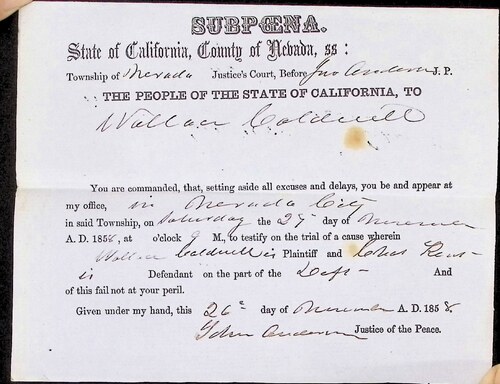 SUBPŒNA.
State of California, County of Nevada, ss:
Township of Nevada Justice's Court, Before Jno Anderson J. P.
THE PEOPLE OF THE STATE OF CALIFORNIA, TO
Wallace Caldwell
You are commanded, that, setting aside all excuses and delays, you be and appear at
my office, in Nevada City
in said Township, on Saturday the 27 day of November
A. D. 1858, at o'clock 9 M., to testify on the trial of a cause wherein
Wallace Caldwell is Plaintiff and Chas
is Defendant on the part of the Deft And
of this fail not at your peril.
Given under my hand, this 26 day of November A. D. 1858.
John Anderson Justice of the Peace.